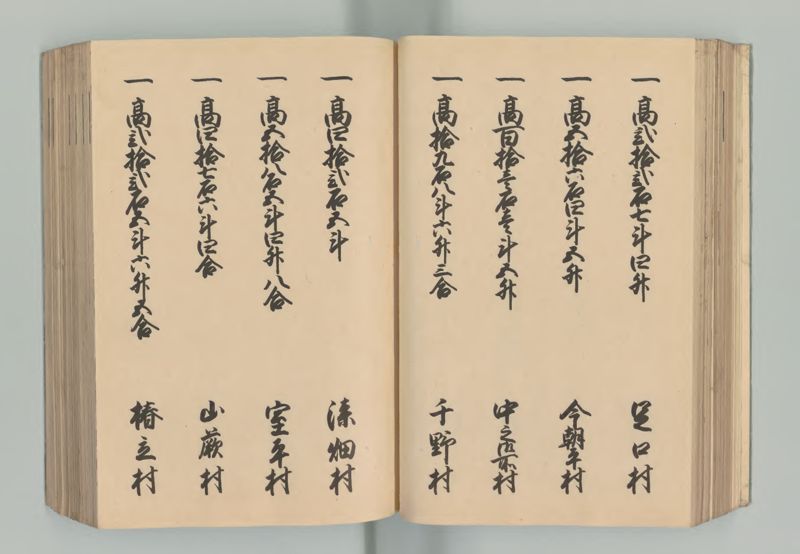 一 高弐拾弐石七斗四升 足口村
一 高五拾六石四斗五升 今朝平村
一 高百拾壱石壱斗五升 中之御所村
一 高拾九石八斗六升三合 千野村
一 高四拾弐石五斗 漆畑村
一 高五拾八石五斗四升八合 室平村
一 高四拾七石六斗四合 山蕨村
一 高弐拾弐石五斗六升五合 椿立村